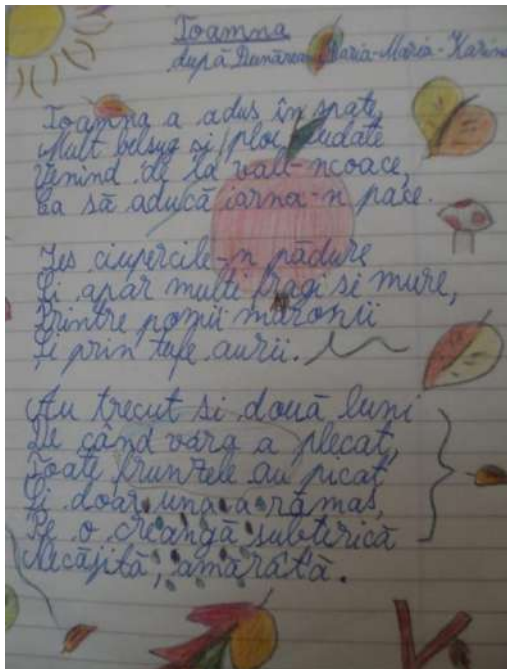 Toamna
după Dunărean Daria-Maria-Karina
Toamna a adus în spate,
Mult belșug și ploi ludate
Venind de la vall-ncoace,
Ca să aducă iarna-n pace.
Ies ciupercile-n pădure
Și apar multi fragi si mure,
Printre pomii maronii
Și prin tufe aurii.
Au trecut si două luni
De când vara a plecat,
Toate frunzele au picat
Și doar una a rămas,
Pe o creangă subtirică
Necăjită, amărâtă.